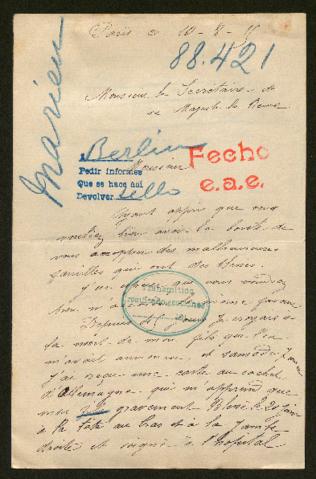 Paris le 10-8-15
88.421
Marieu
Monsieur le Secrétaire de
sa Majesté le
Berlin
Monsieur
Fecho
e.a.e.
Pedir informes
Que se hace aqui
Devolver sello
Ayant appris que vous
vouliez bien avoir la bonté de
vous occuper des malheureuses
familles qui ont des
J'ai que vous voudrez
bien
Depuis je croyais à
la mort de mon fils que l'on
m'avait annoncé et samedi
j'ai reçu une carte au cachet
d'Allemagne qui m'apprend que
mon fils gravement blessé le 20
à la tête au bras et à la jambe
droite et soigné à l'hopital